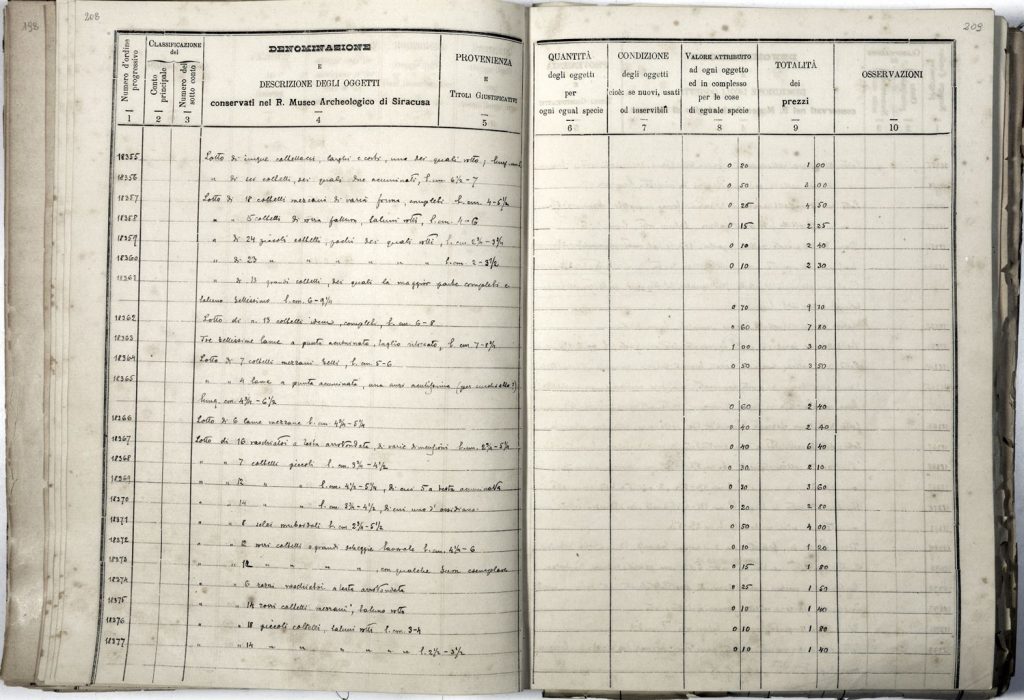 198
208
209
Numero d'ordine progressivo
CLASSIFICAZIONE del
Conto principale
Numero del sotto conto
DENOMINAZIONE
E
DESCRIZIONE DEGLI OGGETTI
conservati nel R. Museo Archeologico di Siracusa
PROVENIENZA
E
TITOLI GIUSTIFICATIVI
QUANTITÀ
degli oggetti
per
ogni egual specie
CONDIZIONE
degli oggetti
cioè: se nuovi, usati
od inservibili
VALORE ATTRIBUITO
ad ogni oggetto
ed in complesso
per le cose
di eguale specie
TOTALITÀ
dei
prezzi
OSSERVAZIONI
1 2 3 4 5 6 7 8 9 10
18355 Lotto di cinque coltellacci, larghi e corti, uno dei quali rotto; lung. 0 20 1 00
18356 " di sei coltelli, dei quali due acuminati, l. cm 6½-7 0 50 3 00
18357 Lotto di 18 coltelli mezzani di varia forma, completi l. cm. 4-5½ 0 25 4 50
18358 " " 15 coltelli di rozza fattura, taluni rotti, l. cm. 4-6 0 15 2 25
18359 " di 24 piccoli coltelli, pochi dei quali rotti, l. cm 2¾-3¾ 0 10 2 40
18360 " di 23 " " " " " " l. cm. 2-3½ 0 10 2 30
18361 " di 13 grandi coltelli, dei quali la maggior parte completi e
taluno bellissimo l. cm. 6-9¼ 0 70 9 10
18362 Lotto di n. 13 coltelli idem, completi, l. cm 6-8 0 60 7 80
18363 Tre bellissime lame a punta acuminata, taglio ritoccato, l. cm 7-8¾ 1 00 3 00
18364 Lotto di 7 coltelli mezzani belli, l. cm 5-6 0 50 3 50
18365 " " 4 lame a punta acuminata, una anzi acutissima
lung. cm 4¾-6½ 0 60 2 40
18366 Lotto di 6 lame mezzane l. cm 4¾-5¼ 0 40 2 40
18367 Lotto di 16 raschiatoi a testa arrotondata, di varie dimensioni l. cm. 2¾-5½ 0 40 6 40
18368 " " 7 coltelli piccoli l. cm. 3¾-4½ 0 30 2 10
18369 " " 12 " " l. cm. 4½-5¾, di cui 5 a testa acuminata 0 30 3 60
18370 " " 14 " " l. cm. 3¾-4½, di cui uno d'ossidiana 0 20 2 80
18371 " " 8 selci l. cm 2¾-5½ 0 50 4 00
18372 " " 12 rozzi coltelli o grandi scheggie lavorate l. cm. 4¾-6 0 10 1 20
18373 " " 12 " " " " " , con qualche buon esemplare 0 15 1 80
18374 " " 6 rozzi raschiatoi a testa arrotondata 0 25 1 50
18375 " " 14 rozzi coltelli mezzani, taluno rotto 0 10 1 40
18376 " " 18 piccoli coltelli, taluni rotti l. cm. 3-4 0 10 1 80
18377 " " 14 " " " " " l. 2½-3½ 0 10 1 40